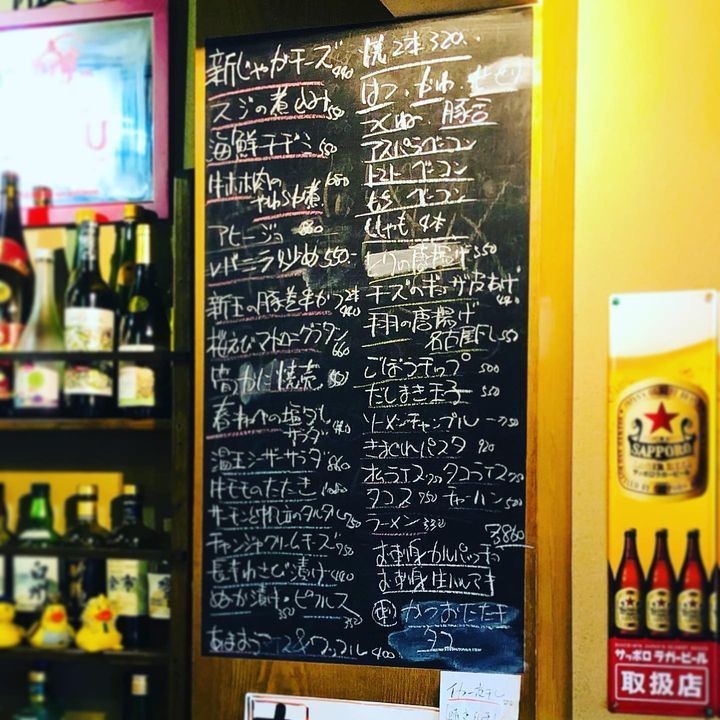 新じゃがチーズ
スジの煮込み 550
海鮮チヂミ 550
牛ホホ肉の
やわらか煮
アヒージョ 860
レバニラ炒め 550.-
新玉の豚巻串かつ2本
桜えびマトローグラタン 660
かに焼売
春キャベの塩ダレ
サラダ
温玉シーザーサラダ 860
牛モモのたたき
サーモンと
のタルタル
チャンジャクリームチーズ 750
長芋わさび漬け
ぬか漬け・ピクルス
350
&ワッフル 400
焼 2本 320.-
はつ・かわ・せせり
つくね・豚
アスパラベーコン
トマトベーコン
もちベーコン
ししゃも 4本
とりの唐揚げ 350
チーズのギョーザ皮あげ
手羽の唐揚げ
名古屋風 550
ごぼうチップ
だしまき玉子 500
ソーメンチャンプル 750
きまぐれパスタ 920
オムライス タコライス
タコス 750 チャーハン
ラーメン
お刺身カルパッチョ
お刺身生ハム
かつおたたき
タコ
SAPPORO
LAGER BEER
サッポロラガービール
サッポロ ラガービール
取扱店